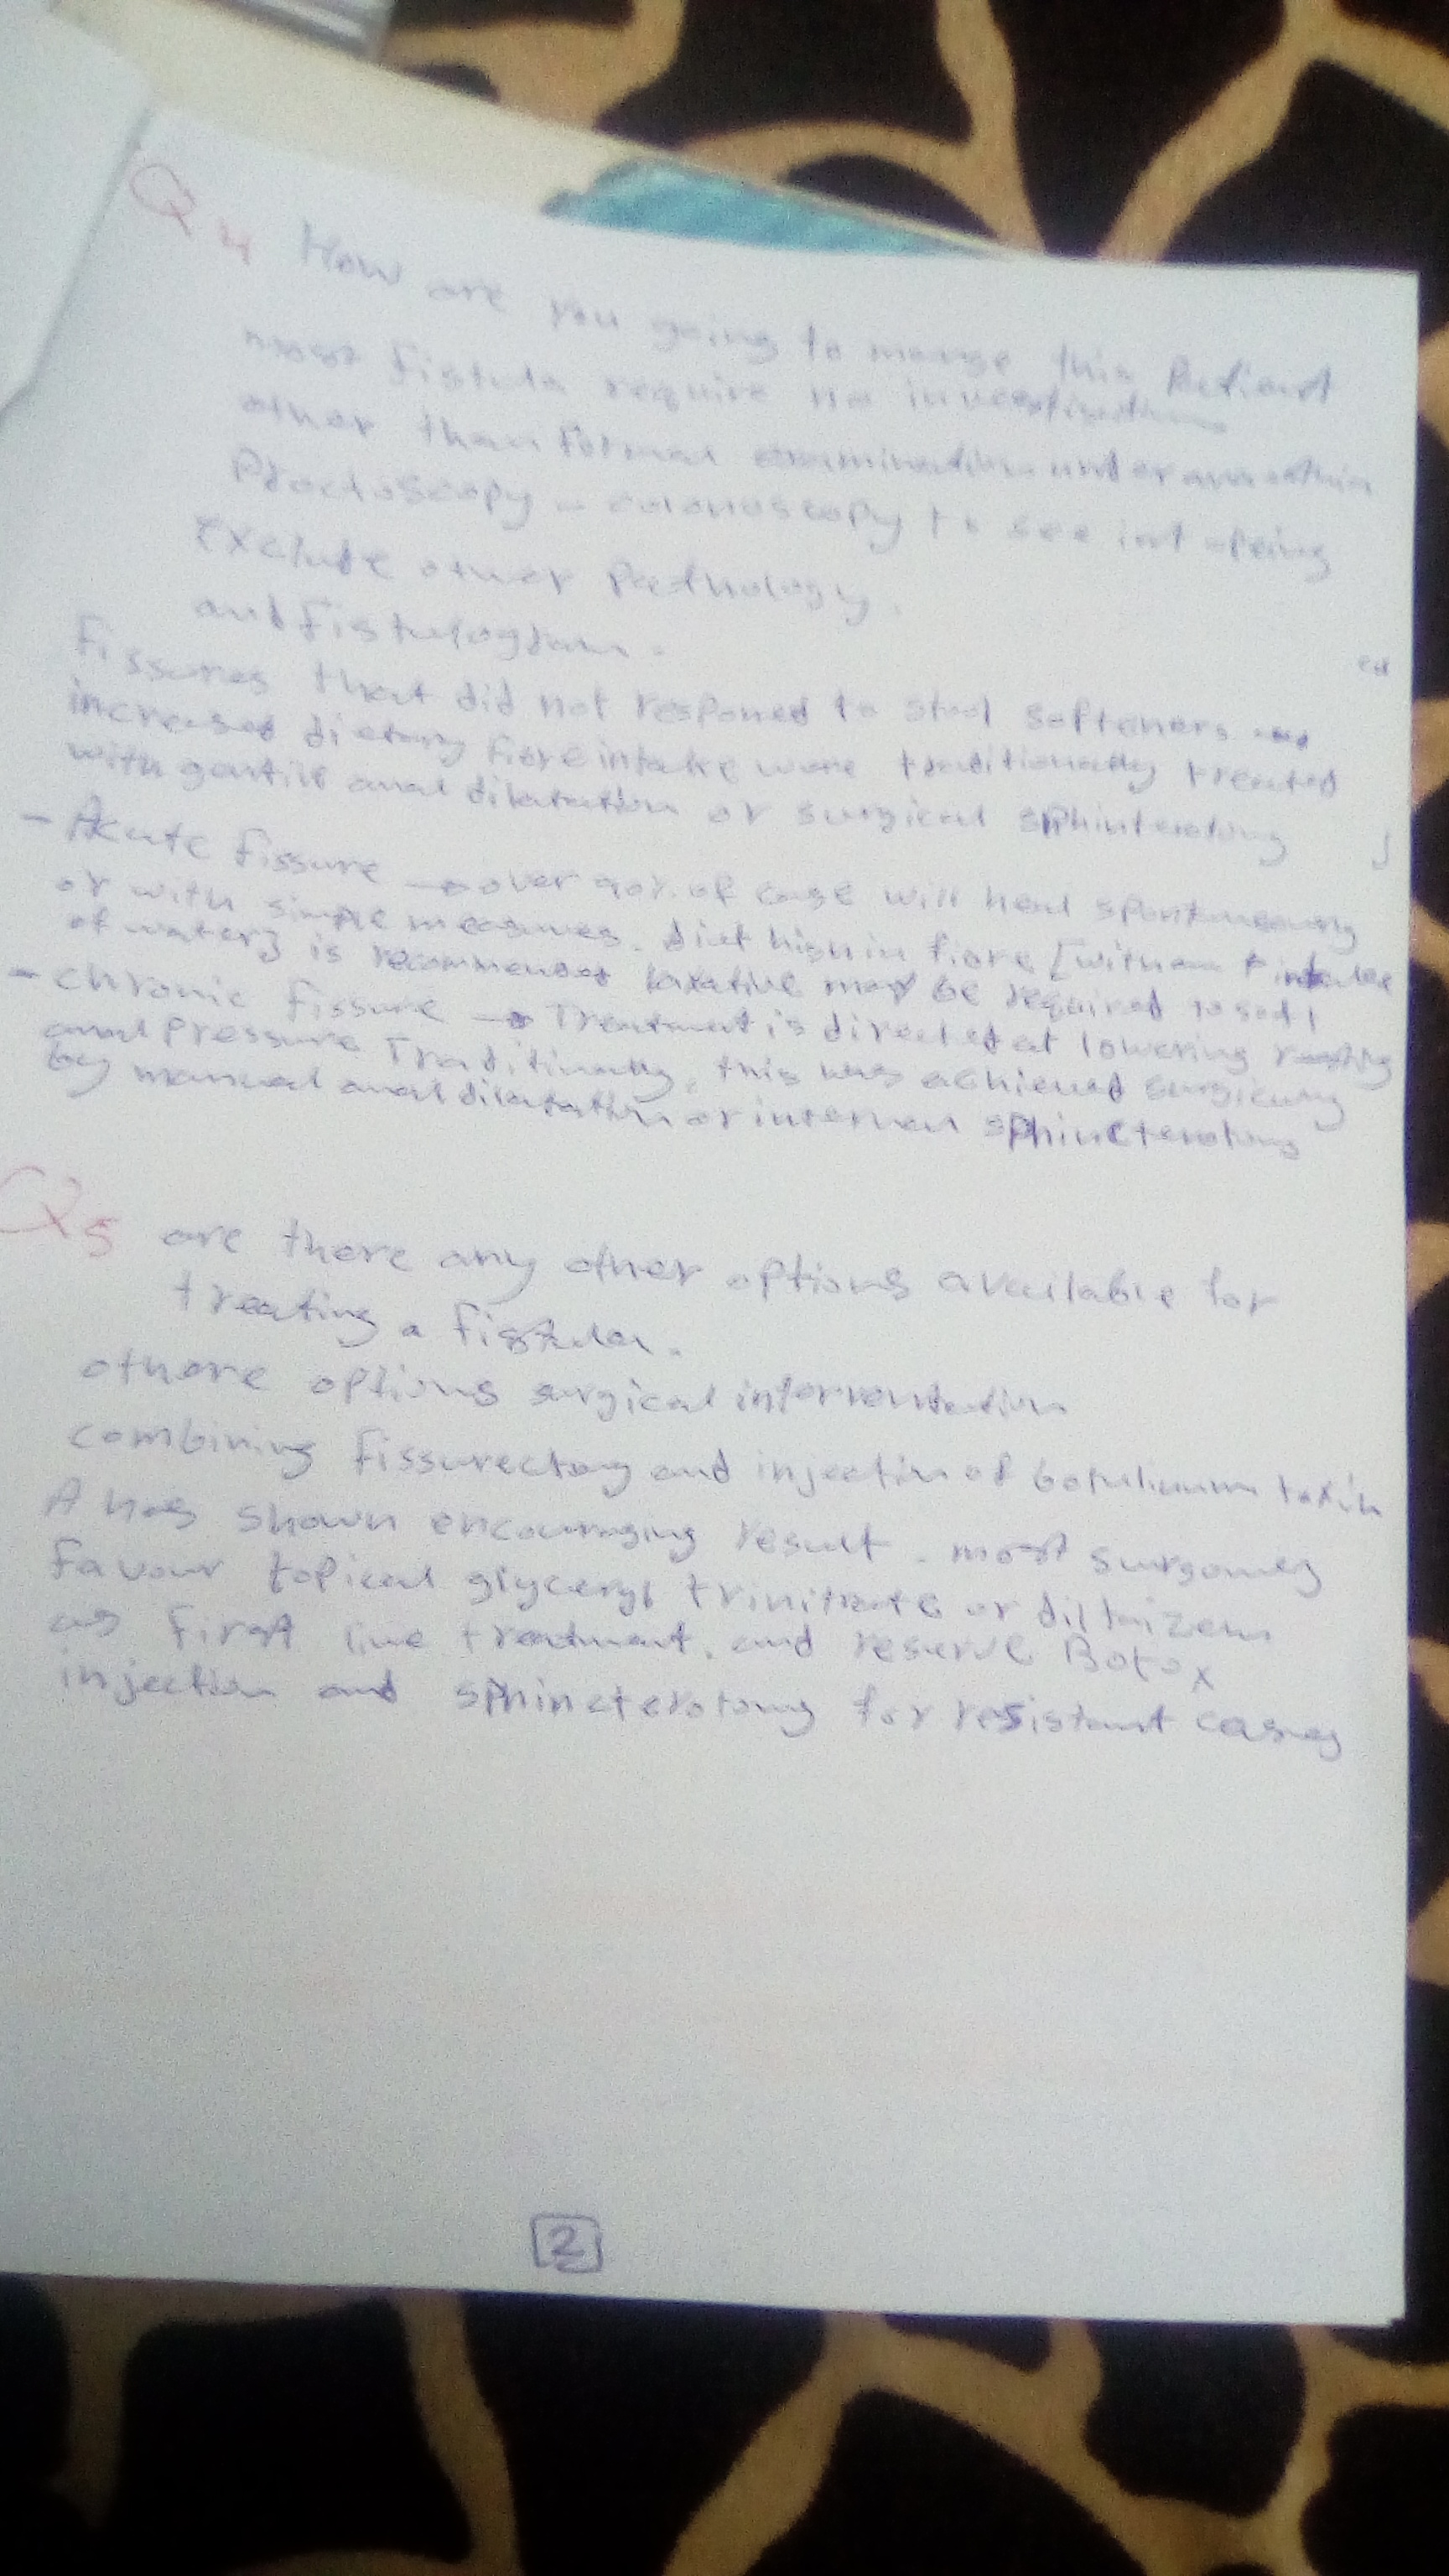 Q4 How are you going to mange this Patient
most fistula require no investigation
other than formal examination under
Proctoscopy - colonoscopy to see int opening
Exclude other Pathology.
and Fistulogram.
Fissures that did not responed to stool softeners
increased dietary fibre intake were traditionally treated
with gentle anal dilatation or surgical
- Acute fissure → over 90%. of case will heal spontaneously
or with simple measures. diet high in fibre [with
of water] is recommended laxative may be required
- chronic fissure → Treatment is directed at lowering resting
anal Pressure Traditinally, this was achieved surgically
by manual anal dilatation or internal sphincterotomy
Q5 are there any other options available for
treating a fistula.
othere options surgical
combining fissurectomy and injection of botulinum toxin
A has shown encouraging result. most surgones
favour topical glyceryl trinitrate or diltaizem
as first line treatment. and reserve Botox
injection and sphincterotomy for resistant cases
2